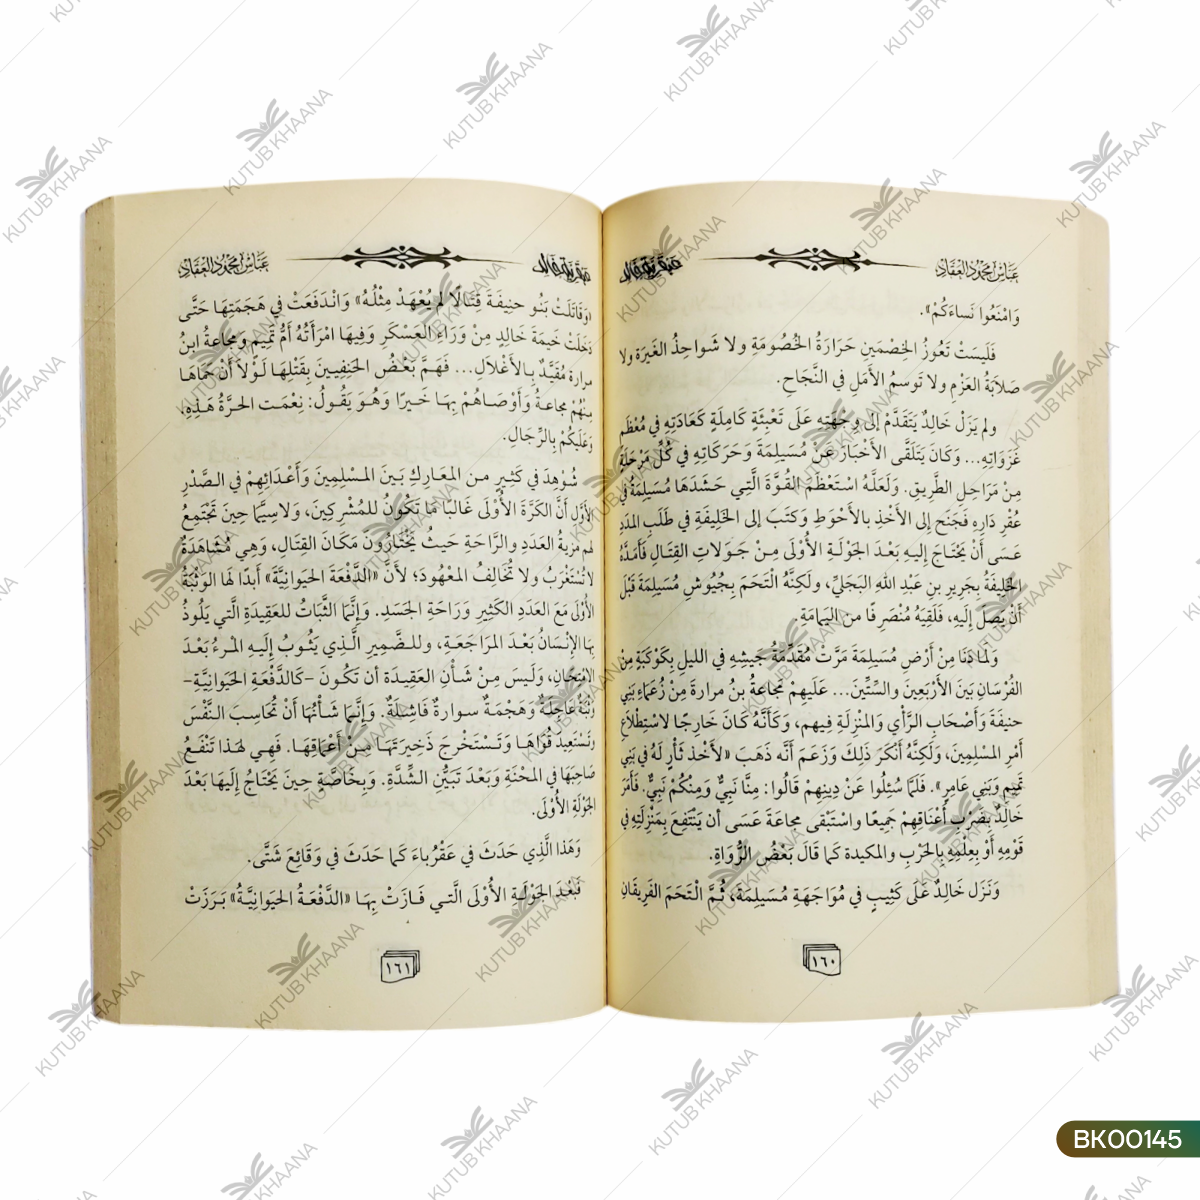 عبقرية خالد
عباس محمود العقاد
وَامْنَعُوا نساءَكُمْ».
فَلَيسَتْ تَعُوزُ الخِصْمَينِ حَرَارَةُ الخُصُومَةِ ولا شَواحِذُ الغَيرَة ولا
صَلابَةُ العَزْمِ ولا تَوسمُ الأَمَلِ في النَّجَاحِ.
ولم يَزَلْ خَالِدٌ يَتَقَدَّمْ إلى وِجْهَتِهِ عَلَى تَعْبِئَةٍ كَامِلَةٍ كَعَادَتِهِ في مُعْظَمِ
غَزَوَاتِهِ... وَكَانَ يَتَلَقَّى الأَخْبَارَ عَنْ مُسَيلِمَةَ وَحَرَكَاتِهِ في كُلِّ مَرْحَلَةٍ
مِنْ مَرَاحِلِ الطَّرِيقِ. وَلَعَلَّهُ اسْتَعْظَمَ القُوَّةَ الَّتِي حَشَدَهَا مُسَيلِمَةُ في
عُقْرِ دَارِهِ فَجَنَحَ إلى الأَخْذِ بالأَحْوَطِ وَكَتَبَ إلى الخَلِيفَةِ في طَلَبِ المَدَدِ
عَسَى أَنْ يَحْتَاجَ إليهِ بَعْدَ الجَوْلَةِ الأُوْلَى مِنْ جَولَاتِ القِتَالِ فَأَمَدَّهُ
الخَلِيفَةُ بجَرِيرِ بنِ عَبْدِ اللهِ البَجَليِّ، ولَكِنَّهُ التَحَمَ بِجُيُوشِ مُسَيلِمَةَ قَبْلَ
أَنْ يَصِلَ إِلَيهِ، فَلَقِيَهُ مُنْصَرِفًا من اليَمَامَةِ.
وَلَما دَنَا مِنْ أَرْضِ مُسَيلِمَةَ مَرَّتْ مُقَدِّمَةُ جَيشِهِ في الليلِ بِكَوْكَبَةٍ مِنْ
الفُرْسَانِ بَينَ الأَرْبَعِينَ والسِّتِّينَ... عَلَيهِمْ مَجَاعَةُ بنُ مرارة مِنْ زُعَمَاءِ بَنِي
حنيفَةَ وَأَصْحَابِ الرَّأْي وَالمَنْزِلَةِ فِيهم، وَكَأَنَّهُ كَانَ خَارِجًا لاسْتِطْلَاعِ
أَمْرِ المسْلِمِينَ، وَلَكِنَّهُ أَنْكَرَ ذَلِكَ وَزَعَمَ أَنَّه ذَهَبَ «لأَخْذِ ثَأْرٍ لَهُ في بَنِي
تَمِيمٍ وَبَنِي عامِرٍ». فَلَمَّا سُئِلُوا عَنْ دِينِهِمْ قَالُوا: مِنَّا نَبِيٌّ وَمِنْكُمْ نَبِيٌّ. فَأَمَرَ
خَالِدٌ بِضَرْبِ أَعْنَاقِهِمْ جَمِيعًا واسْتَبْقَى مجاعَةَ عَسَى أن يَنْتَفِعَ بِمَنْزِلَتِهِ في
قَوْمِهِ أَوْ بِعِلْمِهِ بِالحَرْبِ والمكيدة كما قَالَ بَعْضُ الرُّوَاةِ.
وَنَزَلَ خَالِدٌ عَلَى كَثِيبٍ في مُوَاجَهَةِ مُسَيلِمَةَ، ثُمَّ الْتَحَمَ الفَرِيقَانِ
١٦٠
عبقرية خالد
عباس محمود العقاد
«وَقَاتَلَتْ بَنُو حنِيفَةَ قِتَالًا لَم يُعْهَدْ مِثْلُهُ» وَانْدَفَعَتْ في هَجَمَتِهَا حَتَّى
دَخَلَتْ خَيمَةَ خَالِدٍ مِنْ وَرَاءِ العَسْكَرِ وَفِيهَا امْرَأَتُهُ أُمُّ تَمِيمٍ وَمجاعةُ ابنُ
مرارة مُقَيَّدٌ بِالأَغْلالِ... فَهَمَّ بَعْضُ الحَنِفِيينَ بِقَتْلِهَا لَوْلا أَنْ حَمَاهَا
مِنْهُمْ مجاعةُ وَأَوْصَاهُمْ بِهَا خَيرًا وَهُوَ يَقُولُ: نِعْمَت الحرَّةُ هَذِهِ،
وَعَلَيكُمْ بِالرِّجَالِ.
شُوْهِدَ في كَثِيرٍ من المعَارِكِ بَينَ المسْلِمينَ وَأَعْدَائِهِمْ في الصَّدْرِ
الأَوَّلِ أَنَّ الكَرَّةَ الأُوْلَى غَالبًا مَا تَكُونُ للمُشْرِكِينَ، وَلاسِيَّمَا حِينَ تَجْتَمِعُ
لهم مزيةُ العَدَدِ والرَّاحَةِ حَيثُ يَخْتَارُونَ مَكَانَ القِتَالِ، وَهِي مُشَاهَدَةٌ
لا تُسْتَغْرَبُ ولا تُخَالِفُ المعْهُودَ؛ لأَنَّ «الدَّفْعَةَ الحَيوَانِيَّةَ» أَبَدًا لَها الوَثْبَةُ
الأُوْلى مَعَ العَدَدِ الكَثِيرِ وَرَاحَةِ الجَسَدِ. وَإِنَّما الثَّبَاتُ للعَقِيدَةِ الَّتي يَلُوذُ
بِهَا الإِنْسَانُ بَعْدَ المرَاجَعَةِ، وللضَّمِيرِ الَّذِي يَثُوبُ إِلَيهِ المرءُ بَعْدَ
الامْتِحَانِ، وَلَيسَ مِنْ شَأْنِ العَقِيدَةِ أن تكُونَ -كَالدَّفْعَةِ الحَيَوَانِيَّةِ-
وَثْبَةً عَاجِلَةً وَهَجْمَةً سوارةً فَاشِلَةً. وَإِنَّما شَأْنُهَا أَنْ تُحَاسِبَ النَّفْسَ
وَتَسْتَعِيدَ قُوَاهَا وَتَسْتَخْرِجَ ذَخِيرَتَهَا مِنْ أَعْمَاقِهَا. فَهِي لهذَا تَنْفَعُ
صَاحِبَهَا في المحْنَةِ وَبَعْدَ تَبَيُّنِ الشِّدَّةِ. وَبِخَاصَّةٍ حِينَ يَحْتَاجُ إِلَيهَا بَعْدَ
الجَوْلَةِ الأُوْلَى.
وَهَذا الَّذِي حَدَثَ في عَقْرُباءَ كَما حَدَثَ في وَقَائِعَ شَتَّى.
فَبَعْدَ الجَوْلَةِ الأُوْلَى الَّتِي فَازَتْ بِهَا «الدَّفْعَةُ الحَيَوَانِيَّةُ» بَرَزَتْ
١٦١
KUTUB KHAANA
BK00145